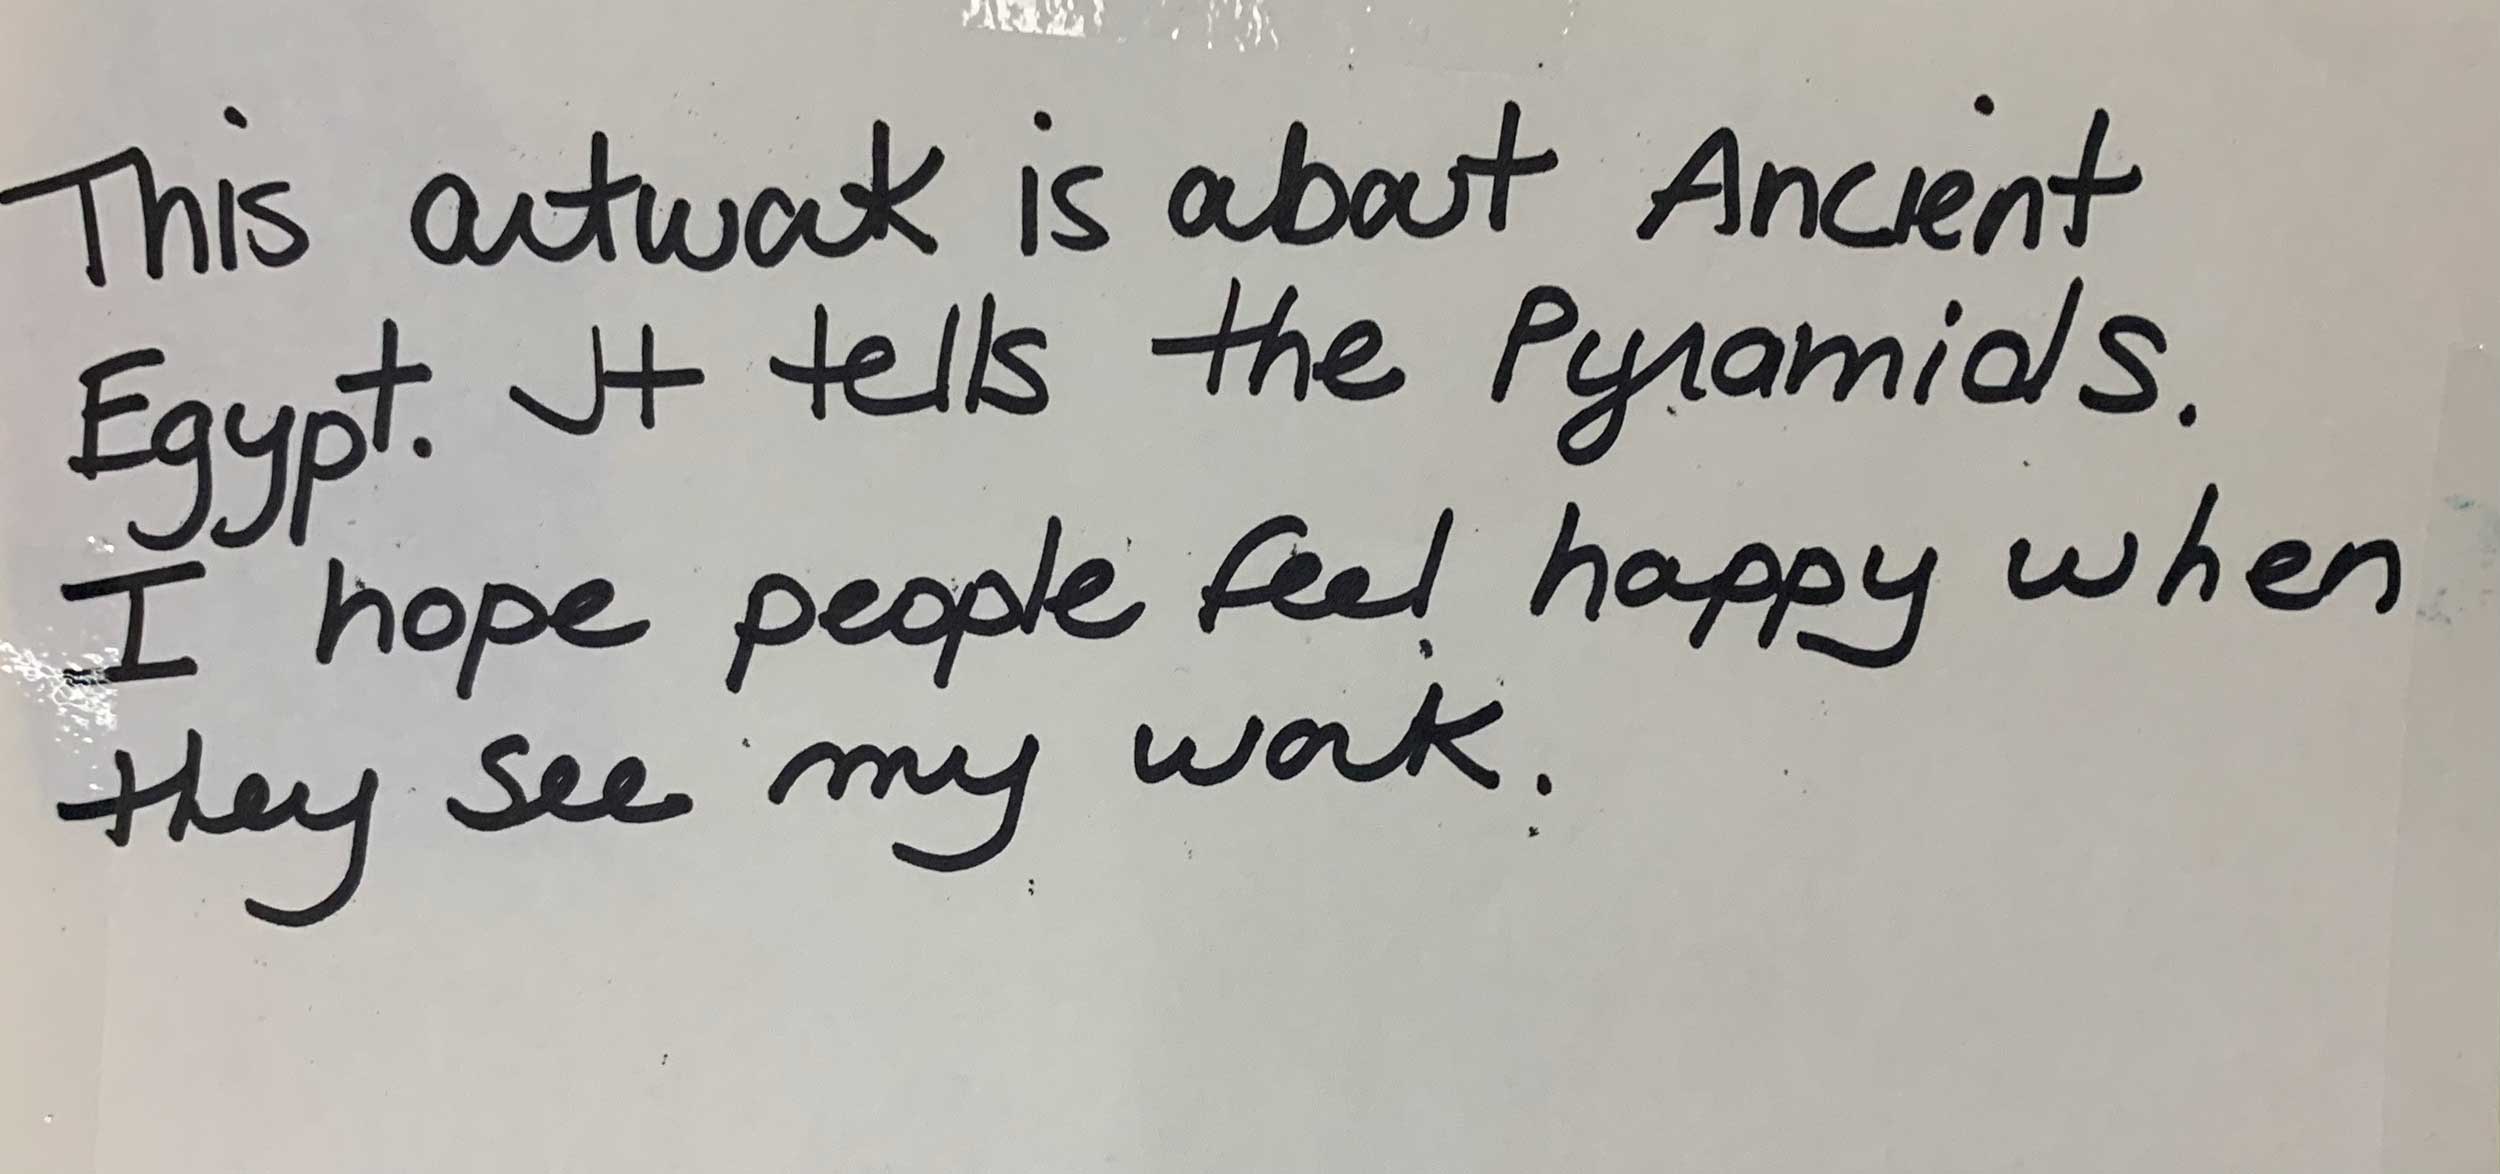 This artwork is about Ancient
Egypt. It tells the Pyramids.
I hope people feel happy when
they see my work.